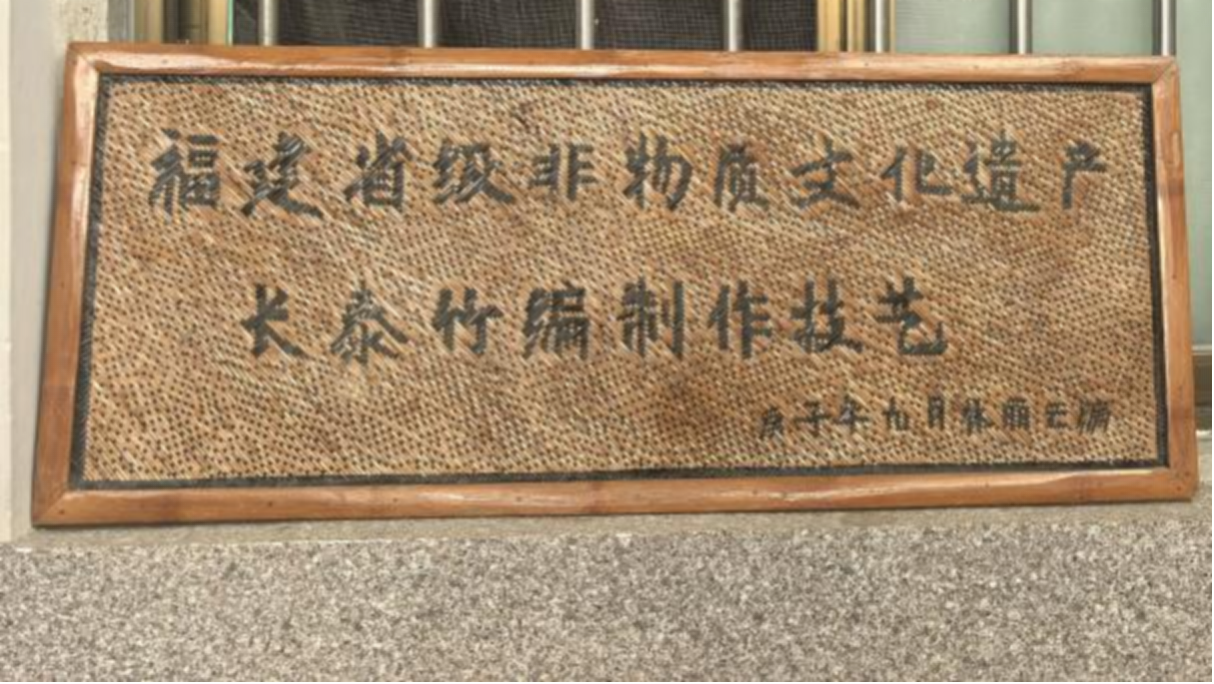 福建省级非物质文化遗产
长泰竹编制作技艺
庚子年九月